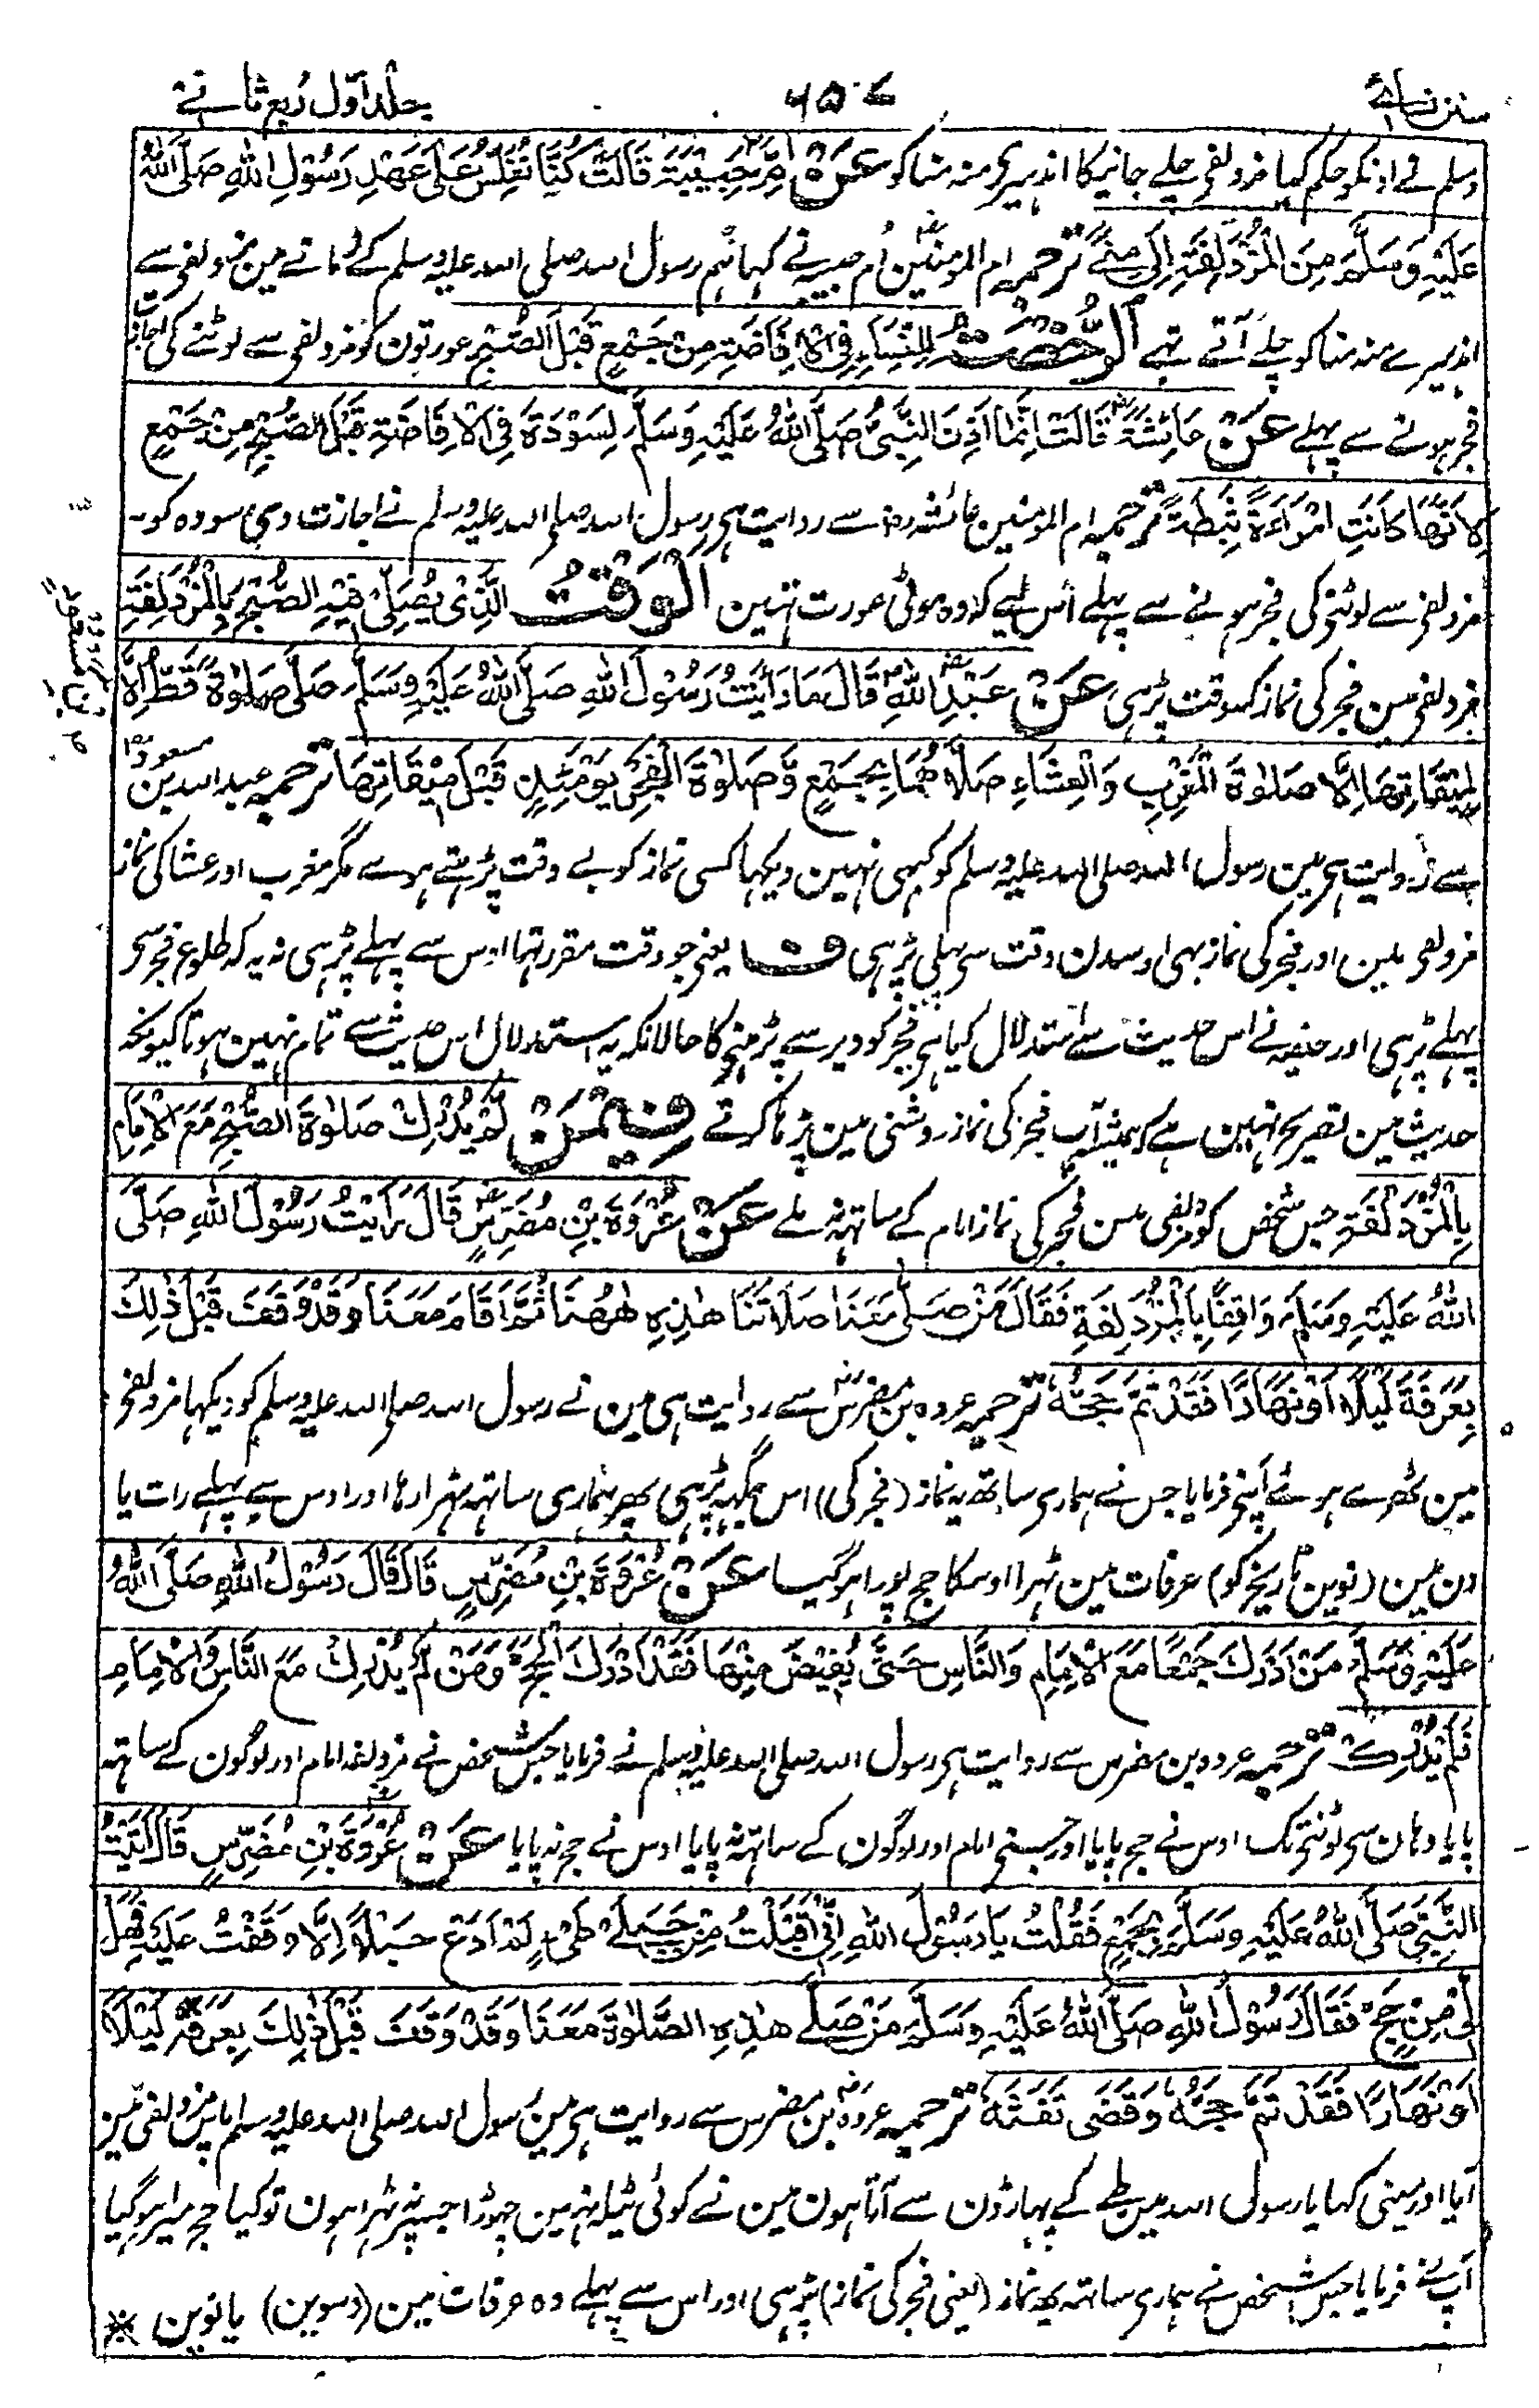 سنن نسائی
۶۵۷
جلد اول ربع ثانے
وسلم نے اونکو حکم کیا مزدلفہ سے چلے جانیکا اندہیرے منہ منا کو عَنْ اُمِّ حَبِيْبَةَ قَالَتْ كُنَّا نُغَلِّسُ عَلٰى عَهْدِ رَسُوْلِ اللهِ صَلَّى اللهُ
عَلَيْهِ وَسَلَّمَ مِنَ الْمُزْدَلِفَةِ اِلٰى مِنًى ترجمہ ام المومنین ام حبیبہ نے کہا ہم رسول اللہ صلی اللہ علیہ وسلم کے زمانے مین مزدلفہ سے
اندہیرے منہ منا کو چلے آتے تہے اَلرُّخْصَةُ لِلنِّسَاءِ فِي الْاِفَاضَةِ مِنْ جَمْعٍ قَبْلَ الصُّبْحِ عورتون کو مزدلفہ سے لوٹنے کی اجازت
فجر ہونے سے پہلے عَنْ عَائِشَةَ قَالَتْ اِنَّمَا اَذِنَ النَّبِيُّ صَلَّى اللهُ عَلَيْهِ وَسَلَّمَ لِسَوْدَةَ فِي الْاِفَاضَةِ قَبْلَ الصُّبْحِ مِنْ جَمْعٍ
لِاَنَّهَا كَانَتِ امْرَاَةً ثَبِطَةً ترجمہ ام المومنین عائشہ رض سے روایت ہے رسول اللہ صلی اللہ علیہ وسلم نے اجازت دی سودہ کو۔
مزدلفہ سے لوٹنے کی فجر ہونے سے پہلے اس لیے کہ وہ موٹی عورت تہین اَلْوَقْتُ الَّذِيْ يُصَلّٰى فِيْهِ الصُّبْحُ بِالْمُزْدَلِفَةِ
مزدلفہ مین فجر کی نماز کسوقت پڑہی عَنْ عَبْدِ اللهِ قَالَ مَا رَاَيْتُ رَسُوْلَ اللهِ صَلَّى اللهُ عَلَيْهِ وَسَلَّمَ صَلّٰى صَلٰوةً قَطُّ اِلَّا
لِمِيْقَاتِهَا اِلَّا صَلٰوةَ الْمَغْرِبِ وَالْعِشَاءِ صَلَّاهُمَا بِجَمْعٍ وَّصَلٰوةَ الْفَجْرِ يَوْمَئِذٍ قَبْلَ مِيْقَاتِهَا ترجمہ عبد اللہ بن مسعود
سے روایت ہے مین رسول اللہ صلی اللہ علیہ وسلم کو کبہی نہین دیکہا کسی نماز کو بے وقت پڑہتے ہوے مگر مغرب اور عشا کی نماز
مزدلفہ مین اور فجر کی نماز بہی اوسدن وقت سے پہلے پڑہی ف یعنے جو وقت مقرر تہا اوس سے پہلے پڑہی نہ یہ کہ طلوع فجر سے
پہلے پڑہی اور حنفیہ نے اس حدیث سے استدلال کیا ہے فجر کو دیر سے پڑہنے کا حالانکہ یہ استدلال اس حدیث سے تمام نہین ہوتا کیونکہ
حدیث مین تصریح نہین ہے کہ ہمیشہ آپ فجر کی نماز روشنی مین پڑہا کرتے فِيْمَنْ لَمْ يُدْرِكْ صَلٰوةَ الصُّبْحِ مَعَ الْاِمَامِ
بِالْمُزْدَلِفَةِ جس شخص کو مزدلفہ مین فجر کی نماز امام کے ساتہہ نہ ملے عَنْ عُرْوَةَ بْنِ مُضَرِّسٍ قَالَ رَاَيْتُ رَسُوْلَ اللهِ صَلَّى
اللهُ عَلَيْهِ وَسَلَّمَ وَاقِفًا بِالْمُزْدَلِفَةِ فَقَالَ مَنْ صَلّٰى مَعَنَا صَلَاتَنَا هٰذِهٖ هٰهُنَا ثُمَّ اَقَامَ مَعَنَا وَقَدْ وَقَفَ قَبْلَ ذٰلِكَ
بِعَرَفَةَ لَيْلًا اَوْ نَهَارًا فَقَدْ تَمَّ حَجُّهٗ ترجمہ عروہ بن مضرس رض سے روایت ہے مین نے رسول اللہ صلی اللہ علیہ وسلم کو دیکہا مزدلفہ
مین ٹہرے ہوئے آپنے فرمایا جس نے ہماری ساتھ یہ نماز (فجر کی) اس جگہہ پڑہی پھر ہماری ساتہہ ٹہرا رہا اور اوس سے پہلے رات یا
دن مین (نوین تاریخ کو) عرفات مین ٹہرا اوسکا حج پورا ہوگیا عَنْ عُرْوَةَ بْنِ مُضَرِّسٍ قَالَ قَالَ رَسُوْلُ اللهِ صَلَّى اللهُ
عَلَيْهِ وَسَلَّمَ مَنْ اَدْرَكَ جَمْعًا مَعَ الْاِمَامِ وَالنَّاسِ حَتّٰى يُفِيْضَ مِنْهَا فَقَدْ اَدْرَكَ الْحَجَّ وَمَنْ لَمْ يُدْرِكْ مَعَ النَّاسِ وَالْاِمَامِ
فَلَمْ يُدْرِكْ ترجمہ عروہ بن مضرس سے روایت ہے رسول اللہ صلی اللہ علیہ وسلم نے فرمایا جس شخص نے مزدلفہ امام اور لوگون کے ساتہہ
پایا وہان سے لوٹنے تک اوس نے حج پایا اور جسنے امام اور لوگون کے ساتہہ نہ پایا اوس نے حج نہ پایا عَنْ عُرْوَةَ بْنِ مُضَرِّسٍ قَالَ اَتَيْتُ
النَّبِيَّ صَلَّى اللهُ عَلَيْهِ وَسَلَّمَ بِجَمْعٍ فَقُلْتُ يَا رَسُوْلَ اللهِ اِنِّيْ اَقْبَلْتُ مِنْ جَبَلَيْ طَيِّءٍ لَمْ اَدَعْ حَبْلًا اِلَّا وَقَفْتُ عَلَيْهِ فَهَلْ
لِّيْ مِنْ حَجٍّ فَقَالَ رَسُوْلُ اللهِ صَلَّى اللهُ عَلَيْهِ وَسَلَّمَ مَنْ صَلّٰى هٰذِهِ الصَّلٰوةَ مَعَنَا وَقَدْ وَقَفَ قَبْلَ ذٰلِكَ بِعَرَفَةَ لَيْلًا
اَوْ نَهَارًا فَقَدْ تَمَّ حَجُّهٗ وَقَضٰى تَفَثَهٗ ترجمہ عروہ بن مضرس سے روایت ہے مین رسول اللہ صلی اللہ علیہ وسلم پاس مزدلفہ مین
آیا اور مینے کہا یا رسول اللہ مین طے کے پہاڑون سے آتا ہون مین نے کوئی ٹیلہ نہین چہوڑا جسپر نہ ٹہرا ہون تو کیا حج میرا ہوگیا
آپ نے فرمایا جس شخص نے ہماری ساتہہ یہ نماز (یعنی فجر کی نماز) پڑہی اور اس سے پہلے وہ عرفات مین (دسوین) یا نوین